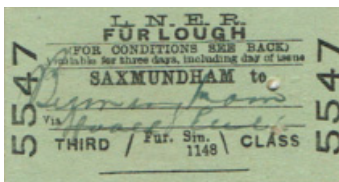 L. N. E. R.
FURLOUGH
(FOR CONDITIONS SEE BACK)
Available for three days, including day of issue
SAXMUNDHAM to
Via
THIRD / Fur. Sin. 1148 \ CLASS
5547
5547